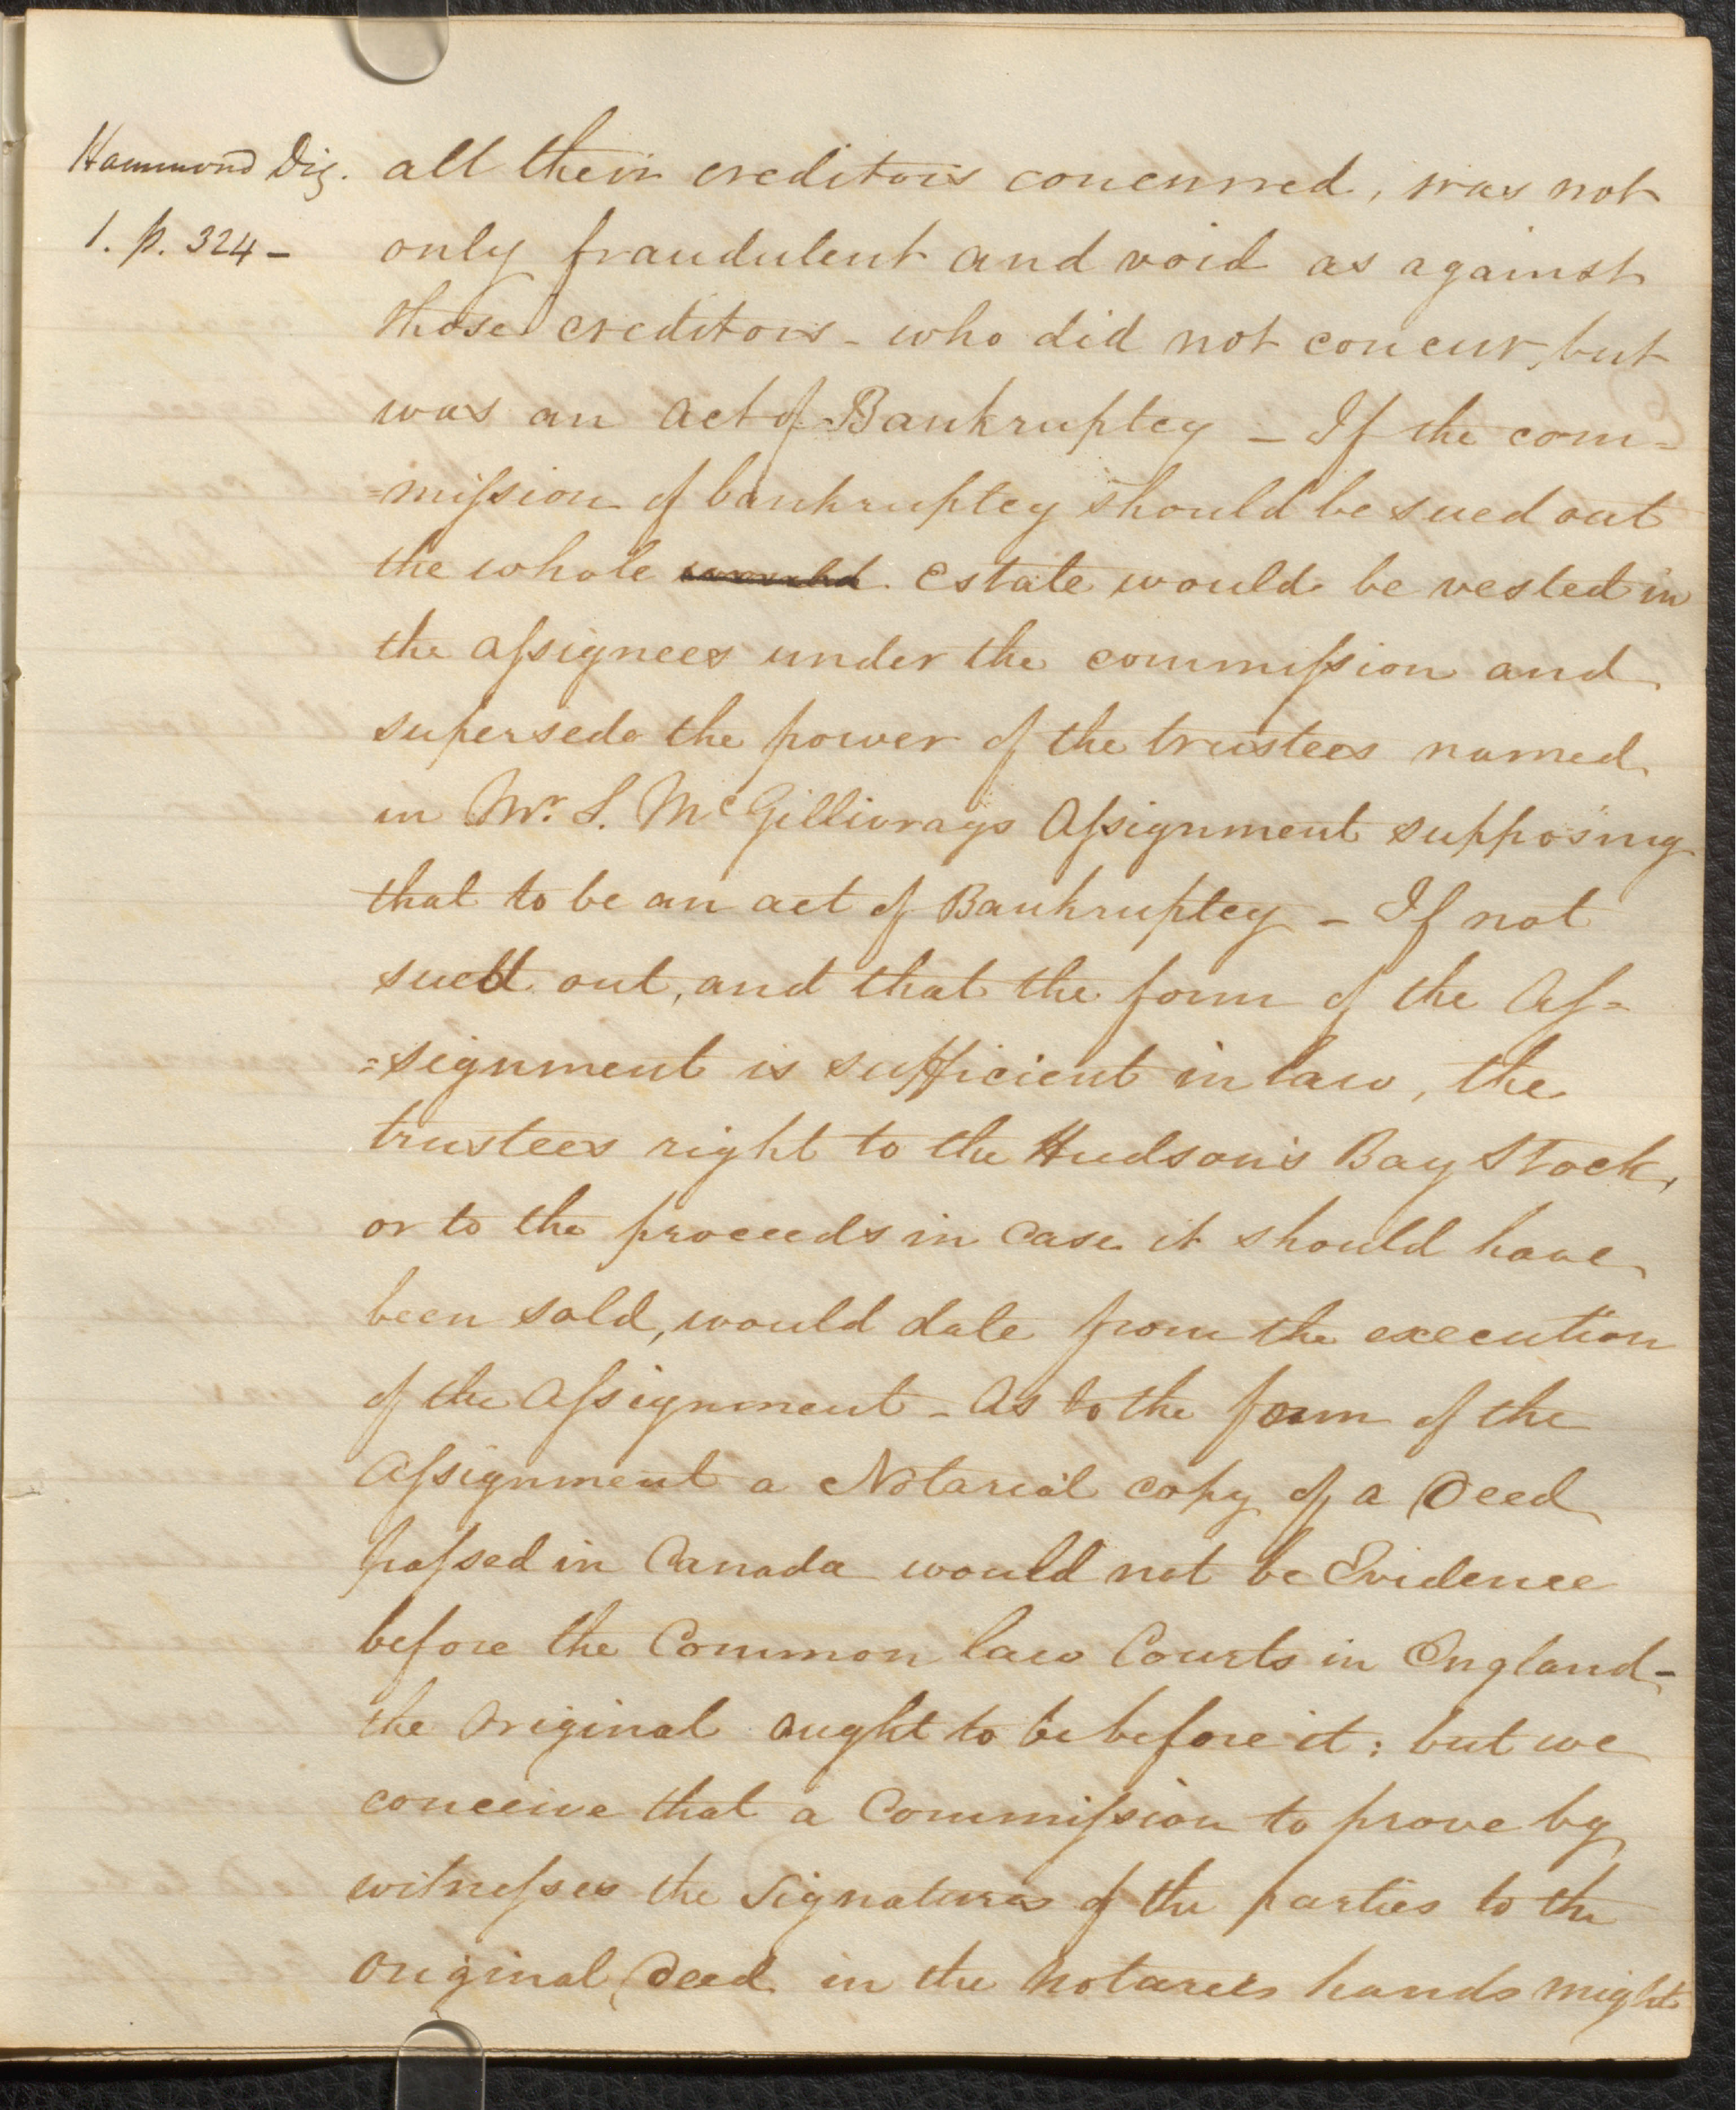 Hammond Dig.
1. p. 324 -
all their creditors concurred, was not
only fraudulent and void as against
those creditors - who did not concur, but
was an act of Bankruptcy - If the com=
=mission of bankruptcy should be sued out
the whole would estate would be vested in
the assignees under the commission and
supersede the power of the trustees named
in Mr. S. McGillivrays Assignment supposing
that to be an act of Bankruptcy - If not
sued out, and that the form of the As=
=signment is sufficient in law, the
trustees right to the Hudson's Bay Stock,
or to the proceeds in case it should have
been sold, would date from the execution
of the Assignment - As to the form of the
Assignment a Notarial copy of a Deed
passed in Canada would not be Evidence
before the Common law Courts in England -
the original ought to be before it: but we
conceive that a Commission to prove by
witnesses the Signatures of the parties to the
original Deed in the Notaries hands might